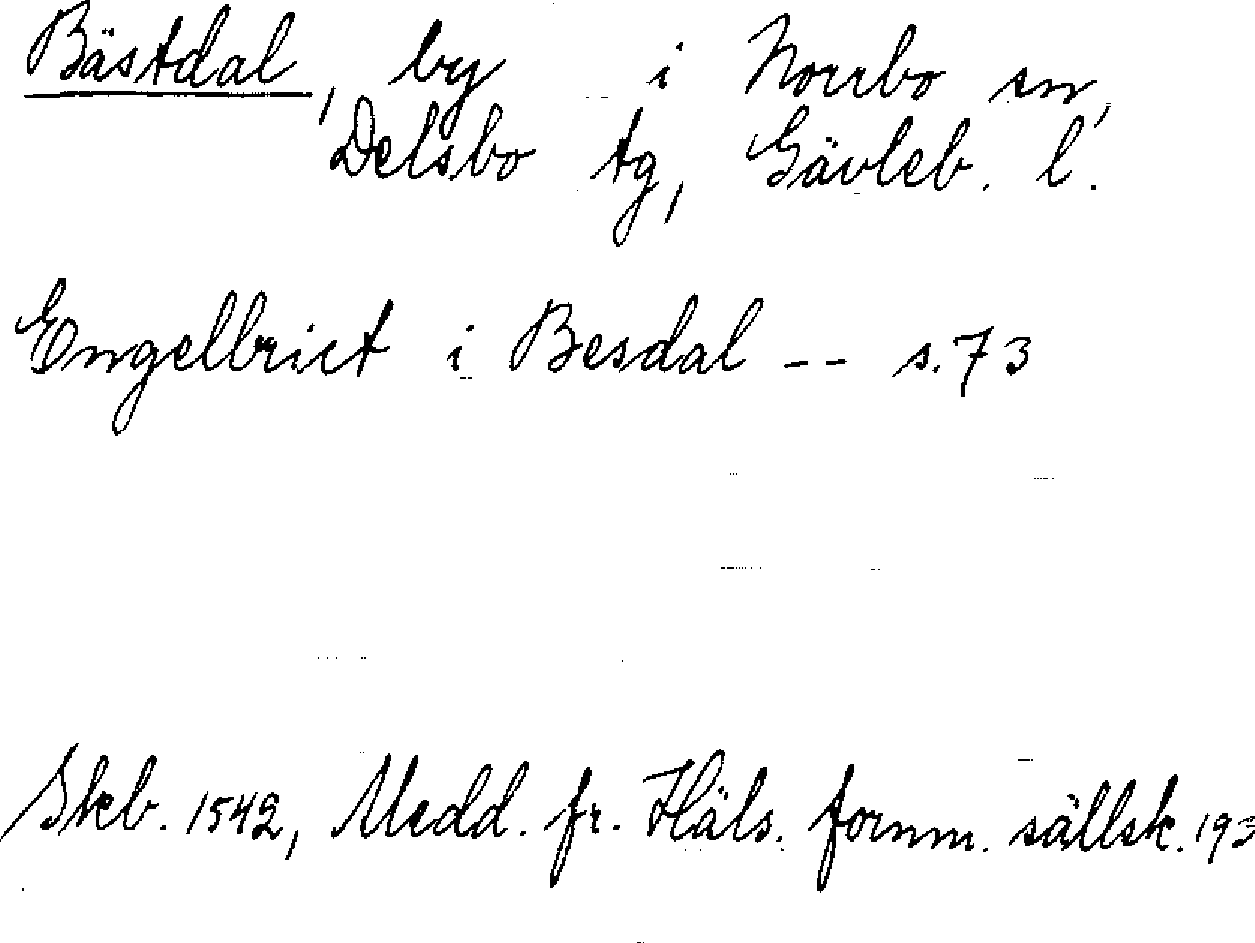 Bästdal, by i Norrbo sn,
Delsbo tg, Gävleb. l.
Engelbrict i Besdal -- s. 73
Skeb. 1542, Medd. fr. Häls. fornm. sällsk. 193